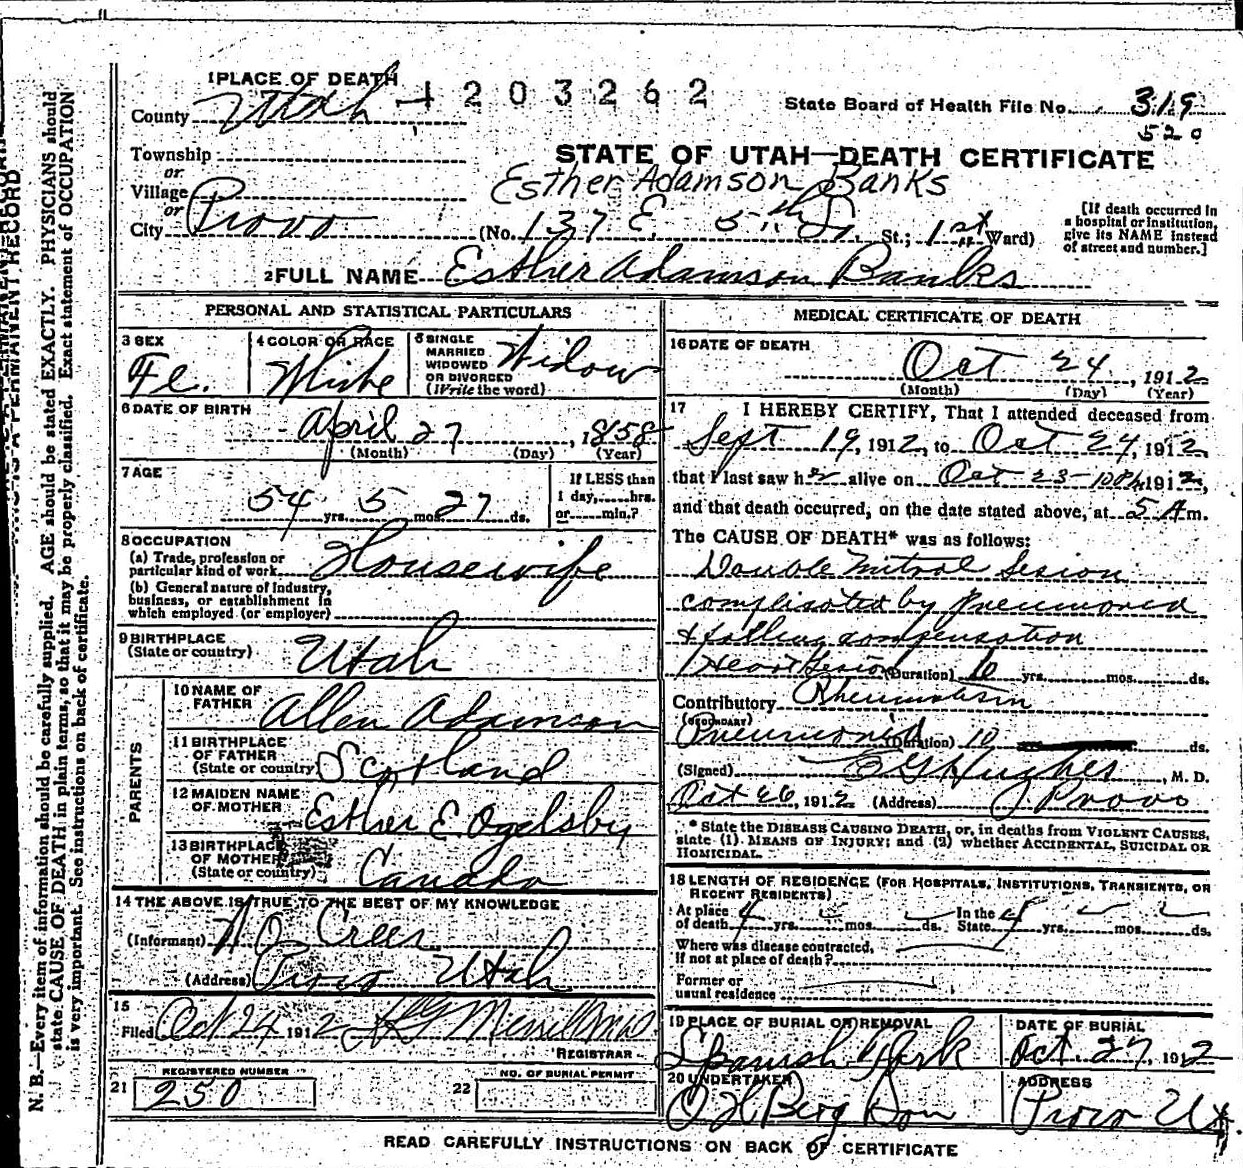 1 PLACE OF DEATH
1203262
County Utah
State Board of Health File No. 319
520
Township
or
Village
or
City Provo
STATE OF UTAH—DEATH CERTIFICATE
Esther Adamson Banks
(No. 137 E. 5th So. St.; 1st Ward)
[If death occurred in a hospital or institution, give its NAME instead of street and number.]
2 FULL NAME Esther Adamson Banks
PERSONAL AND STATISTICAL PARTICULARS
3 SEX
Fe.
4 COLOR OR RACE
White
5 SINGLE
MARRIED
WIDOWED
OR DIVORCED
(Write the word)
Widow
6 DATE OF BIRTH
April 27, 1858
(Month) (Day) (Year)
7 AGE
54 yrs. 5 mos. 27 ds.
If LESS than
1 day,......hrs.
or......min.?
8 OCCUPATION
(a) Trade, profession or
particular kind of work
Housewife
(b) General nature of industry,
business, or establishment in
which employed (or employer)
9 BIRTHPLACE
(State or country)
Utah
PARENTS
10 NAME OF
FATHER
Allen Adamson
11 BIRTHPLACE
OF FATHER
(State or country)
Scotland
12 MAIDEN NAME
OF MOTHER
Esther E. Ogelsby
13 BIRTHPLACE
OF MOTHER
(State or country)
Canada
14 THE ABOVE IS TRUE TO THE BEST OF MY KNOWLEDGE
(Informant) W O Creer
(Address) Provo Utah
15
Filed Oct 24 1912 Merrill M.D.
REGISTRAR
REGISTERED NUMBER
21 250
NO. OF BURIAL PERMIT
22
MEDICAL CERTIFICATE OF DEATH
16 DATE OF DEATH
Oct 24, 1912
(Month) (Day) (Year)
17 I HEREBY CERTIFY, That I attended deceased from
Sept 19, 1912, to Oct 24, 1912,
that I last saw her alive on Oct 23-10 P., 1912,
and that death occurred, on the date stated above, at 5 A m.
The CAUSE OF DEATH* was as follows:
Double Mitral Lesion
complicated by Pneumonia
& failing compensation
Heart Lesion (Duration) 10 yrs. mos. ds.
Contributory Rheumatism
(SECONDARY)
Pneumonia (Duration) 10 ds.
(Signed) Hughes, M. D.
Oct 26, 1912 (Address) Provo
* State the DISEASE CAUSING DEATH, or, in deaths from VIOLENT CAUSES,
state (1) MEANS OF INJURY; and (2) whether ACCIDENTAL, SUICIDAL OR
HOMICIDAL.
18 LENGTH OF RESIDENCE (FOR HOSPITALS, INSTITUTIONS, TRANSIENTS, OR
RECENT RESIDENTS)
At place of death 4 yrs. mos. ds. In the State yrs. mos. ds.
Where was disease contracted,
if not at place of death?
Former or
usual residence
19 PLACE OF BURIAL OR REMOVAL
Spanish Fork
DATE OF BURIAL
Oct. 27, 1912
20 UNDERTAKER
O H Berg Son
ADDRESS
Provo Ut.
READ CAREFULLY INSTRUCTIONS ON BACK OF CERTIFICATE
PERMANENT RECORD
N. B.—Every item of information should be carefully supplied. AGE should be stated EXACTLY. PHYSICIANS should
state CAUSE OF DEATH in plain terms, so that it may be properly classified. Exact statement of OCCUPATION
is very important. See instructions on back of certificate.